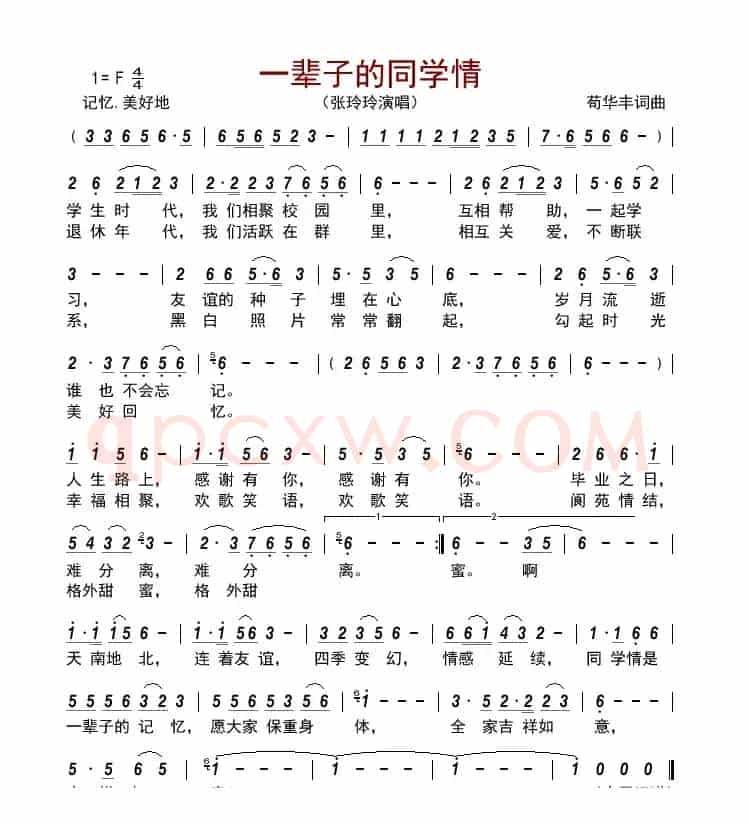 一辈子的同学情
1= F 4/4
记忆.美好地
（张玲玲演唱）
苟华丰词曲
( 3 3 6 5 6 · 5 | 6 5 6 5 2 3 - | 1 1 1 1 2 1 2 3 5 | 7 · 6 5 6 - )
2 6 2 1 2 3 | 2 · 2 3 7 6 5 6 | 6 - - - | 2 6 2 1 2 3 | 5 · 6 5 2
学生时 代，我 们相聚 校 园 里， 互相 帮 助，一 起学
退休年 代，我们活跃 在 群 里， 相互 关 爱，不 断联
3 - - - | 2 6 6 5 · 6 | 5 · 5 3 5 | 6 - - - | 2 6 5 · 6
习， 友 谊的 种 子 埋 在 心 底， 岁 月 流 逝
系， 黑 白 照 片 常 常 翻 起， 勾 起 时 光
2 · 3 7 6 5 6 | 6 - - - | ( 2 6 5 6 3 | 2 · 2 3 7 6 5 6 | 6 - - - )
谁 也 不会忘 记。
美 好 回 忆。
qpcxw.COM
i i 5 6 - | i · i 5 6 3 | 2 · 3 5 3 | 6 - - - | 2 6 6 · i
人 生 路 上， 感 谢 有 你， 感 谢 有 你。 毕 业 之 日，
幸 福 相 聚， 欢 歌 笑 语， 欢 歌 笑 语。 阆 苑 情 结，
1.
2
5 4 3 2 3 - | 2 · 3 7 6 5 6 | 6 - - :| 6 - 3 5 | 6 - - - |
难 分 离， 难 分 离。 蜜。 啊
格外甜 蜜， 格 外甜
i · i i 5 6 - | i · i 5 6 3 | 3 2 5 3 - | 6 6 i 4 3 2 - | i · i 6 6
天 南地 北， 连 着友 谊， 四季 变 幻， 情感 延 续， 同 学情是
5 5 5 5 6 3 2 3 | 2 5 5 6 5 3 5 | i - - - | 3 · 5 2 · 2 3 | 5 - - -
一辈子的 记 忆，愿大家 保重身 体， 全 家吉 祥如 意，
5 · 5 5 - | i - - - | i - - - | i - - - | i 0 0 0